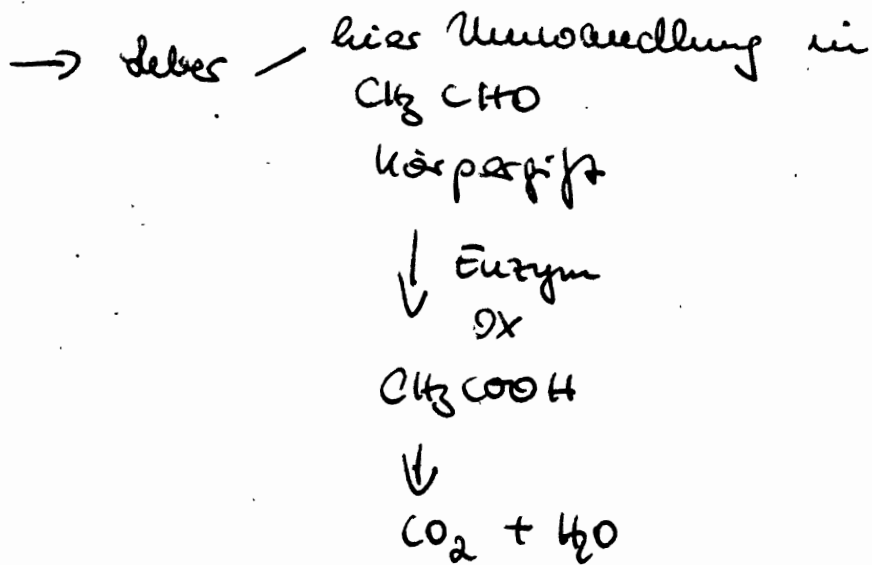 → Leber / hier Umwandlung in
CH₃ CHO
Körpergift
↓ Enzym
OX
CH₃COOH
↓
CO₂ + H₂O